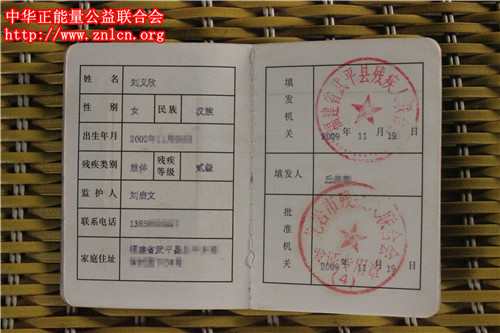 中华正能量公益联合会
www.znlcn.org
姓 名 刘文欣
性 别 女 民族 汉族
出生年月 2002年11月
残疾类别 肢体 残疾等级 贰级
监 护 人 刘启文
联系电话 1385
家庭住址 福建省武平县
填发机关
福建省武平县残疾人联合会
2009 年 11 月 19 日
填发人 丘
批准机关
残疾人联合会
专用章
(4)
2009 年 11 月 19 日